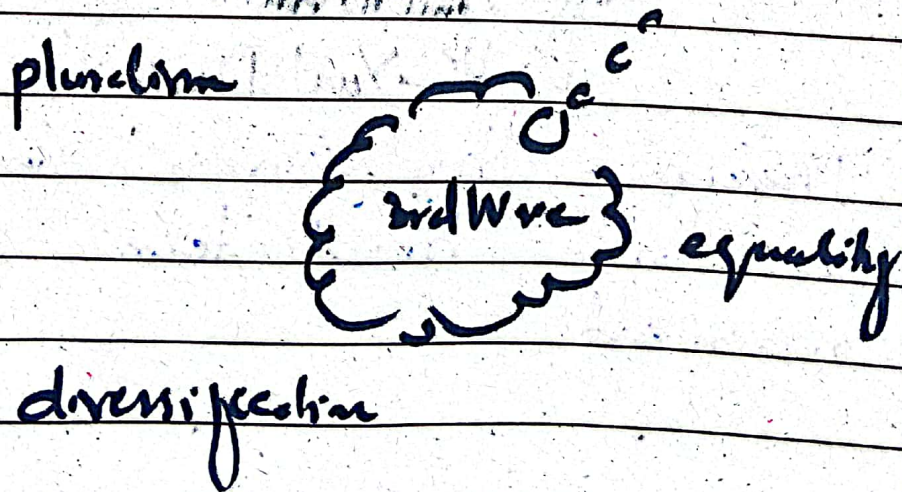 pluralism
3rd Wave
equality
diversification